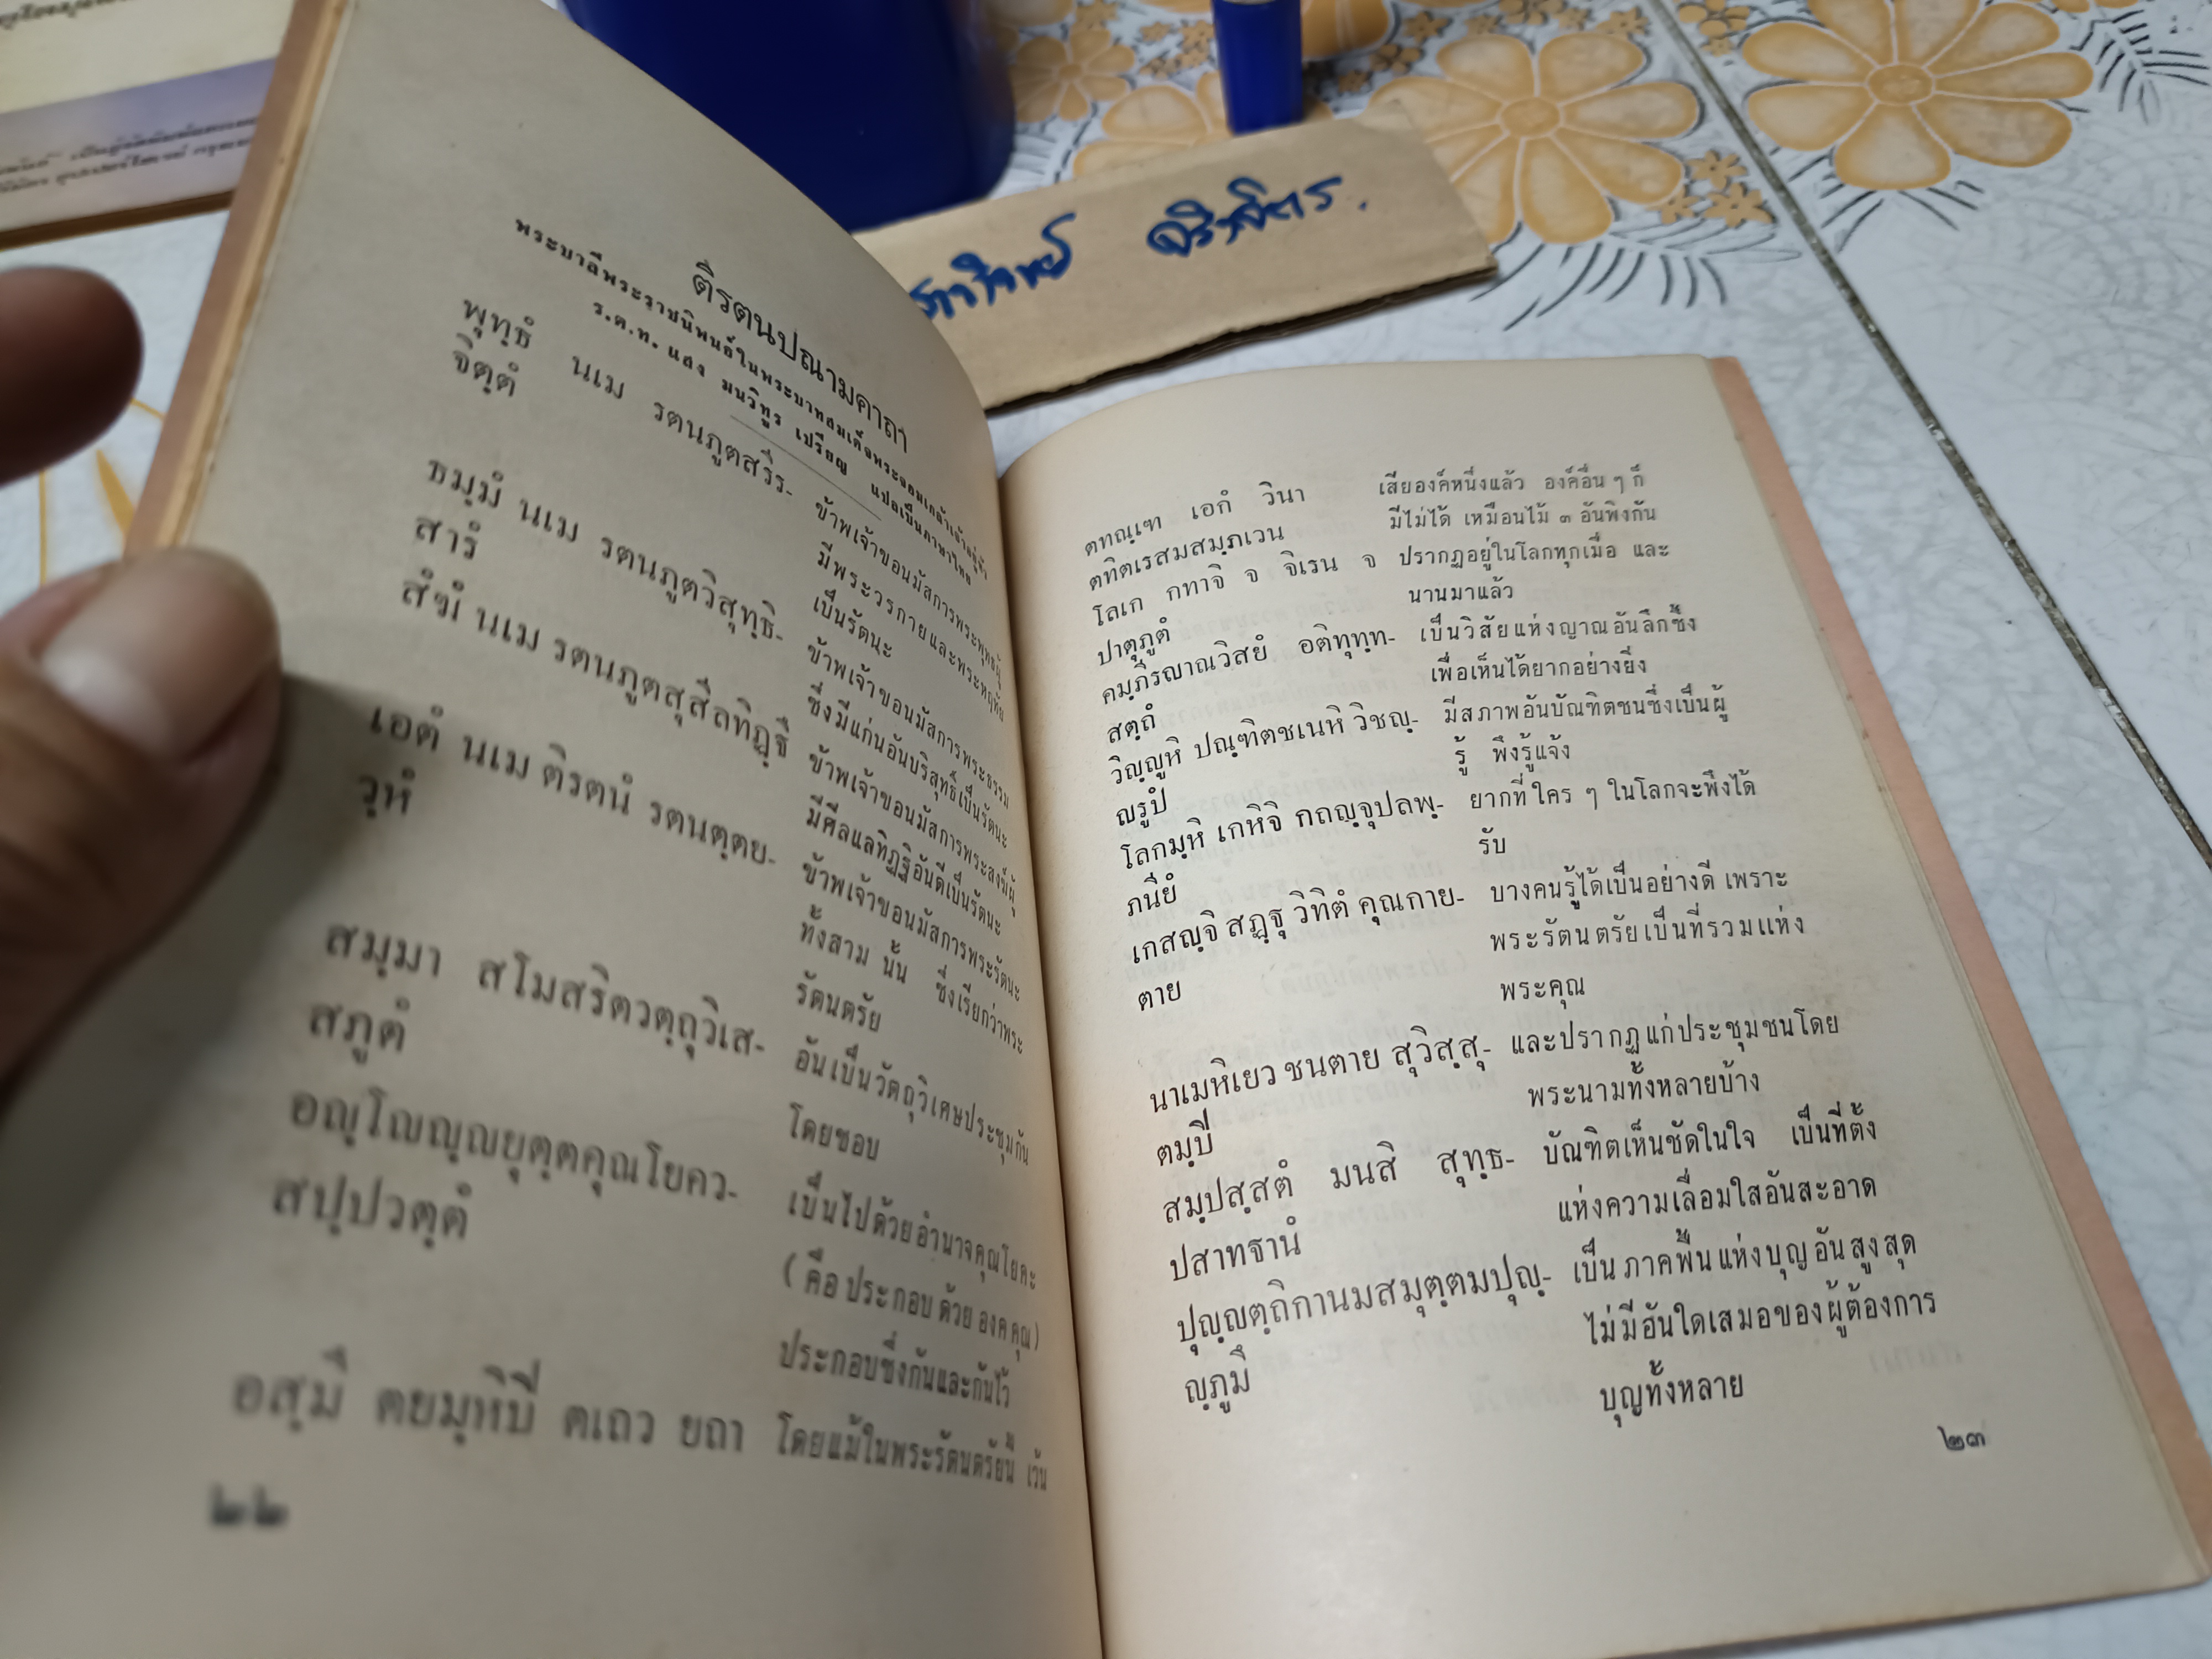 ติรตนปณามคาถา
พระบาลีพระราชนิพนธ์ในพระบาทสมเด็จพระจอมเกล้าเจ้าอยู่หัว
ร.ต.ท. แสง มนวิทูร เปรียญ แปลเป็นภาษาไทย
พุทฺธํ นเม รตนภูตสรีร-
จิตฺตํ
ข้าพเจ้าขอนมัสการพระพุทธผู้
มีพระวรกายและพระหฤทัย
เป็นรัตนะ
ธมฺมํ นเม รตนภูตวิสุทฺธิ-
สารํ
ข้าพเจ้าขอนมัสการพระธรรม
ซึ่งมีแก่นอันบริสุทธิ์เป็นรัตนะ
สํฆํ นเม รตนภูตสุสีลทิฏฺฐึ
ข้าพเจ้าขอนมัสการพระสงฆ์ผู้
มีศีลแลทิฏฐิอันดีเป็นรัตนะ
เอตํ นเม ติรตนํ รตนตฺตย-
วฺหํ
ข้าพเจ้าขอนมัสการพระรัตนะ
ทั้งสาม นั้น ซึ่งเรียกว่าพระ
รัตนตรัย
สมฺมา สโมสริตวตฺถุวิเส-
สภูตํ
อันเป็นวัตถุวิเศษประชุมกัน
โดยชอบ
อญฺโญญฺญยุตฺตคุณโยคว-
สปฺปวตฺตํ
เป็นไปด้วยอำนาจคุณโยคะ
( คือ ประกอบ ด้วย องคคุณ)
ประกอบซึ่งกันและกันไว้
อสฺมึ ตยมฺหิปี ตเถว ยถา
โดยแม้ในพระรัตนตรัยนี้ เว้น
๒๒
ตทณฺเฑ เอกํ วินา
เสียองค์หนึ่งแล้ว องค์อื่น ๆ ก็
ตทิตเรสมสมฺภเวน
มีไม่ได้ เหมือนไม้ ๓ อันพิงกัน
โลเก กทาจิ จ จิเรน จ
ปาตุภูตํ
ปรากฏอยู่ในโลกทุกเมื่อ และ
นานมาแล้ว
คมฺภีรญาณวิสยํ อติทุทฺท-
สตฺถํ
เป็นวิสัยแห่งญาณอันลึกซึ้ง
เพื่อเห็นได้ยากอย่างยิ่ง
วิญฺญูหิ ปณฺฑิตชเนหิ วิชญฺ-
ญรูปํ
มีสภาพอันบัณฑิตชนซึ่งเป็นผู้
รู้ พึงรู้แจ้ง
โลกมฺหิ เกหิจิ กถญฺจุปลพฺ-
ภนียํ
ยากที่ ใคร ๆ ในโลกจะพึงได้
รับ
เกสญฺจิ สฏฺฐุ วิทิตํ คุณกาย-
ตาย
บางคนรู้ได้เป็นอย่างดี เพราะ
พระรัตนตรัยเป็นที่รวมแห่ง
พระคุณ
นาเมหิเยว ชนตาย สุวิสฺสุ-
ตมฺปี
และปรากฏแก่ประชุมชนโดย
พระนามทั้งหลายบ้าง
สมฺปสฺสตํ มนสิ สุทฺธ-
ปสาทฐานํ
บัณฑิตเห็นชัดในใจ เป็นที่ตั้ง
แห่งความเลื่อมใสอันสะอาด
ปุญฺญตฺถิกานมสมุตฺตมปุญฺ-
ญฺภูมึ
เป็น ภาคพื้นแห่งบุญ อันสูงสุด
ไม่มีอันใดเสมอของผู้ต้องการ
บุญทั้งหลาย
๒๓